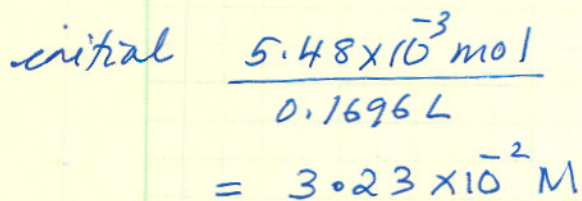 initial 5.48x10⁻³ mol
0.1696 L
= 3.23 x10⁻² M